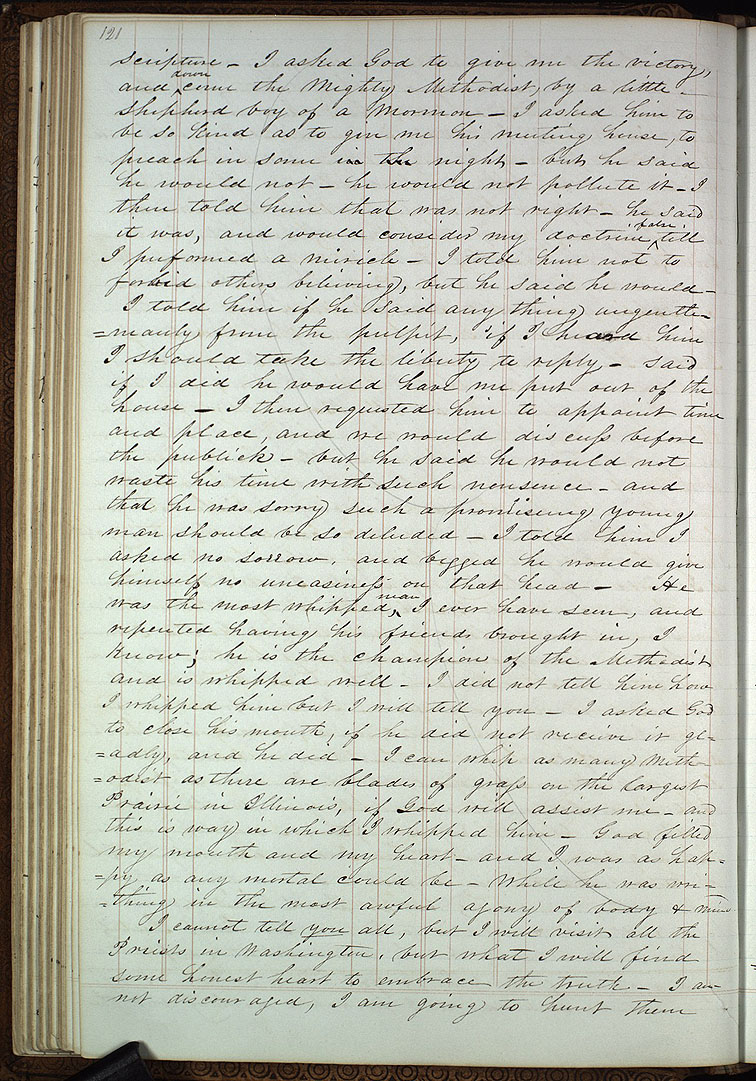 121
scripture – I asked God to give me the victory,
and down come the Mighty Methodist, by a little
shepherd boy of a Mormon – I asked him to
be so kind as to give me his meeting house, to
preach in some in the night – but he said
he would not – he would not pollute it – I
then told him that was not right – he said
it was, and would consider my doctrine false, till
I performed a miricle – I told him not to
forbid others believing, but he said he would –
I told him if he said any thing ungentle=
=manly from the pulpit, if I heard him
I should take the liberty to reply – said
if I did he would have me put out of the
house – I then requested him to appoint time
and place, and we would discuss before
the publick – but he said he would not
waste his time with such nonsence – and
that he was sorry such a promiseing young
man should be so deluded – I told him I
asked no sorrow, and begged he would give
himself no uneasiness on that head – He
was the most whipped, man I ever have seen, and
repented having his friends brought in, I
know; he is the champion of the Methodist
and is whipped well – I did not tell him how
I whipped him but I will tell you – I asked God
to close his mouth, if he did not receive it gl=
=adly, and he did – I can whip as many Meth=
=odist as there are blades of grass on the largest
Prairie in Illinois, if God will assist me – and
this is way in which I whipped him – God filled
my mouth and my heart – and I was as hap=
=py as any mortal could be – While he was wri=
=thing in the most awful agony of body & mind
I cannot tell you all, but I will visit all the
Priests in Washington, but what I will find
some honest heart to embrace the truth – I am
not discouraged, I am going to hunt them